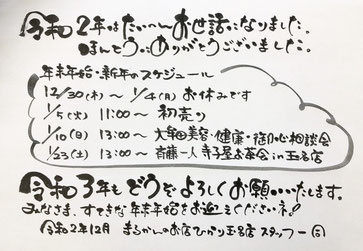 令和2年はたいへんお世話になりました。
ほんとうにありがとうございました。
年末年始・新年のスケジュール
12/30(水)〜1/4(月)お休みです
1/5(火) 11:00〜 初売り
1/10(日) 13:00〜 大牟田美容・健康・御心相談会
1/23(土) 13:00〜 斉藤一人寺子屋お茶会in玉名店
令和3年もどうぞよろしくお願いいたします。
みなさま、すてきな年末年始をお迎えくださいネ!
令和2年12月 まるかんのお店ひかり玉名店 スタッフ一同